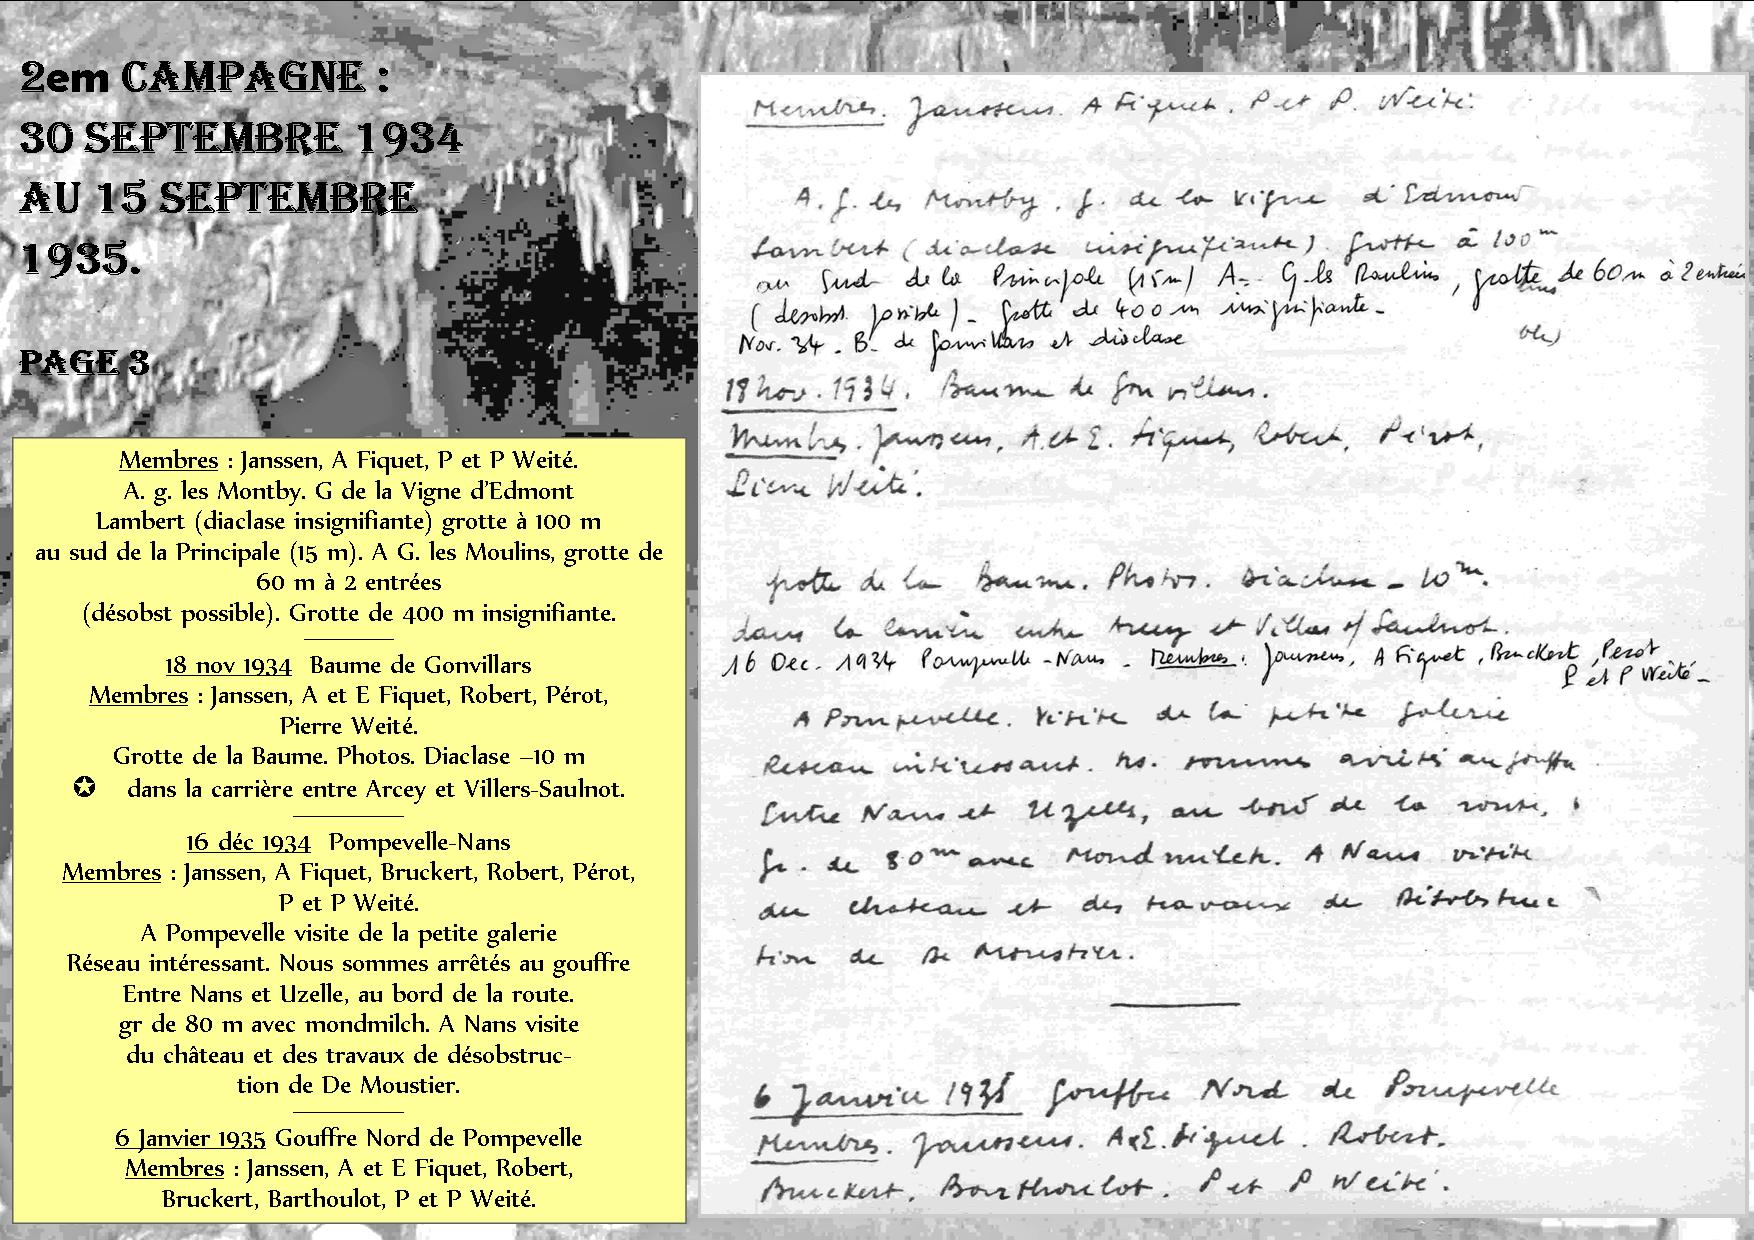 2em CAMPAGNE :
30 SEPTEMBRE 1934
AU 15 SEPTEMBRE
1935.
PAGE 3
Membres : Janssen, A Fiquet, P et P Weité.
A. g. les Montby. G de la Vigne d'Edmont
Lambert (diaclase insignifiante) grotte à 100 m
au sud de la Principale (15 m). A G. les Moulins, grotte de
60 m à 2 entrées
(désobst possible). Grotte de 400 m insignifiante.
18 nov 1934 Baume de Gonvillars
Membres : Janssen, A et E Fiquet, Robert, Pérot,
Pierre Weité.
Grotte de la Baume. Photos. Diaclase –10 m
✪ dans la carrière entre Arcey et Villers-Saulnot.
16 déc 1934 Pompevelle-Nans
Membres : Janssen, A Fiquet, Bruckert, Robert, Pérot,
P et P Weité.
A Pompevelle visite de la petite galerie
Réseau intéressant. Nous sommes arrêtés au gouffre
Entre Nans et Uzelle, au bord de la route.
gr de 80 m avec mondmilch. A Nans visite
du château et des travaux de désobstruc-
tion de De Moustier.
6 Janvier 1935 Gouffre Nord de Pompevelle
Membres : Janssen, A et E Fiquet, Robert,
Bruckert, Barthoulot, P et P Weité.
Membres. Janssens. A Fiquet. P et P. Weité.
A. g. les Montby. g. de la Vigne d'Edmond
Lambert (diaclase insignifiante). grotte à 100m
au Sud de la Principale (15m) A- G. les Moulins, grotte de 60m à 2 entrées
(desobst. possible) - grotte de 400m insignifiante -
Nov. 34. B. de Gonvillars et diaclase
18 nov. 1934. Baume de Gonvillars.
Membres. Janssens, A. et E. Fiquet, Robert, Pérot,
Pierre Weité.
grotte de la Baume. Photos. Diaclase - 10m.
dans la carrière entre Arcey et Villers s/ Saulnot.
16 Dec. 1934 Pompevelle - Nans - Membres: Janssens, A Fiquet, Bruckert, Perot
P et P Weité -
A Pompevelle. Visite de la petite galerie
Réseau intéressant. ns. sommes arrêtés au gouffre
Entre Nans et Uzelle, au bord de la route,
gr. de 80m avec Mondmilch. A Nans visite
du chateau et des travaux de Désobstruc
tion de De Moustier.
6 Janvier 1935 Gouffre Nord de Pompevelle
Membres. Janssens. A & E. Fiquet. Robert.
Bruckert. Barthoulot. P et P Weité.